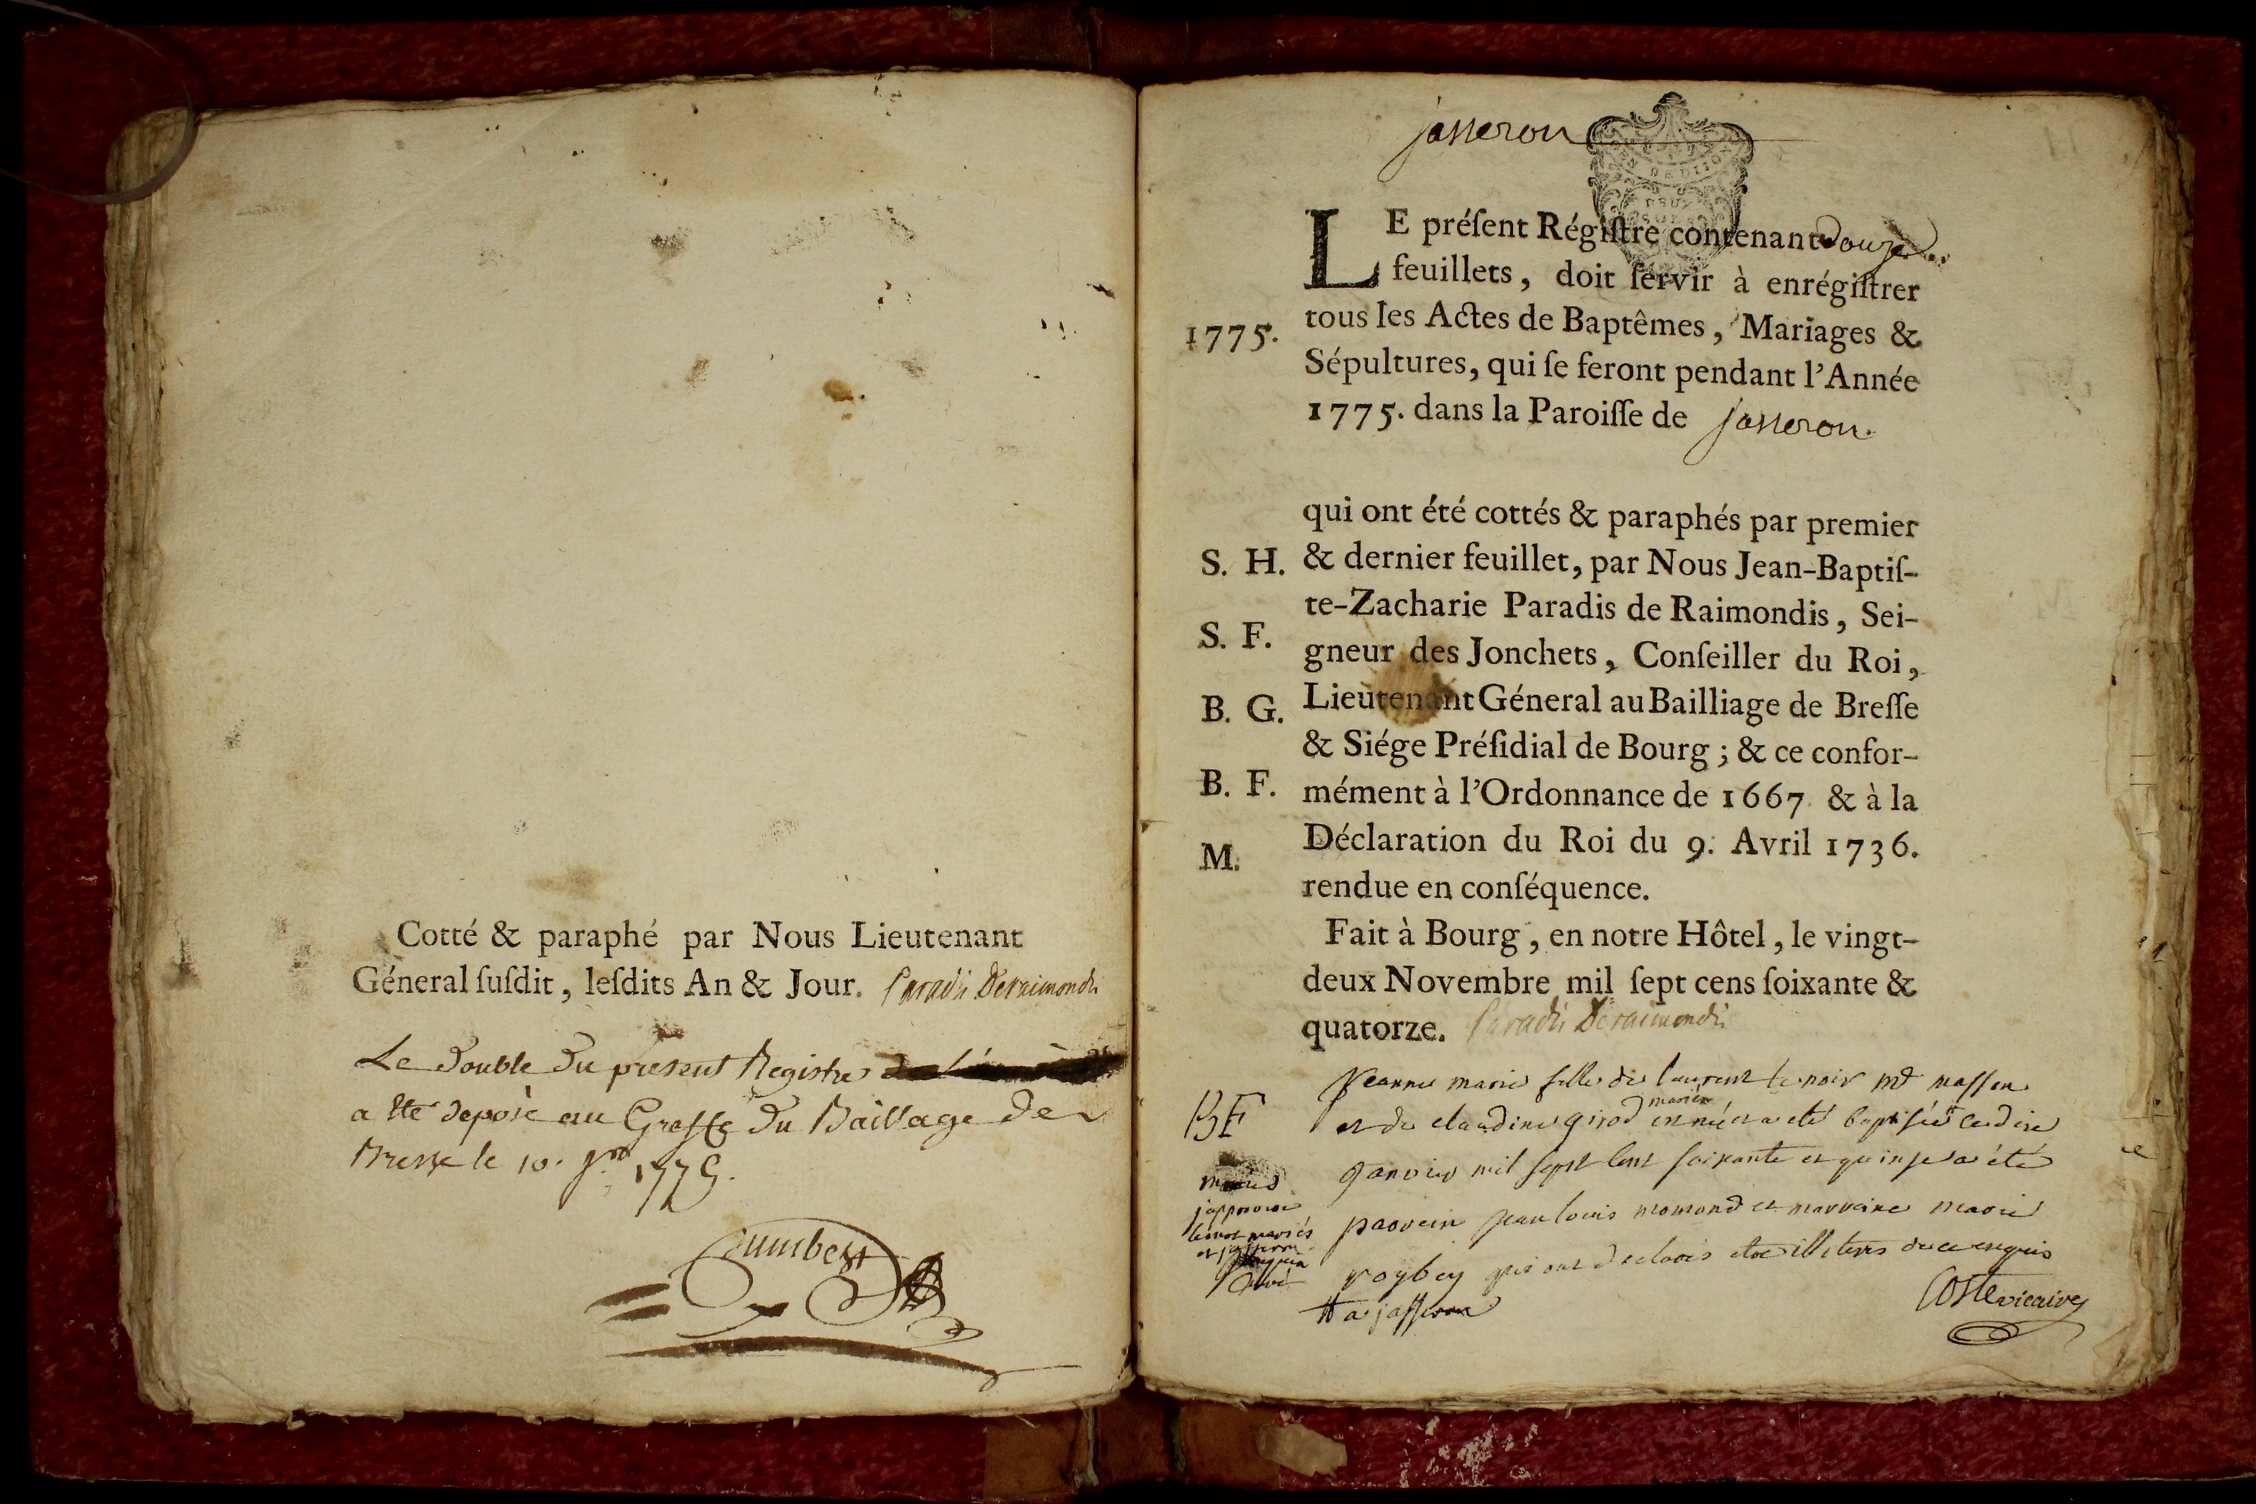 Cotté & paraphé par Nous Lieutenant
Géneral ſuſdit, leſdits An & Jour. Paradis Deraimondis
Le Double Du present Registre
a été deposé au Greffe Du Bailliage De
Bresse le 10. 1775.
jasseron
LE préſent Régiſtre contenant Douze
feuillets, doit ſervir à enrégiſtrer
tous les Actes de Baptêmes, Mariages &
1775.
Sépultures, qui ſe feront pendant l'Année
1775. dans la Paroiſſe de jasseron.
qui ont été cottés & paraphés par premier
S. H. & dernier feuillet, par Nous Jean-Baptiſ-
te-Zacharie Paradis de Raimondis, Sei-
S. F.
gneur des Jonchets, Conſeiller du Roi,
B. G. Lieutenant Géneral au Bailliage de Breſſe
& Siége Préſidial de Bourg ; & ce confor-
B. F. mément à l'Ordonnance de 1667 & à la
Déclaration du Roi du 9. Avril 1736.
M.
rendue en conſéquence.
Fait à Bourg, en notre Hôtel, le vingt-
deux Novembre mil ſept cens ſoixante &
quatorze. Paradis Deraimondis
jeanne marie fille de laurent lenoir md masson
mariés
BF et de claudine girod est née et a été baptisée le dix
janvier mil sept cent soixante et quinze a été
parrein jean louis et marreine marie
qui ont declaré etre illiterés de ce enquis
Coste vicaire
a jasseron
japprouve
le mot mariés
et jasseron
curé